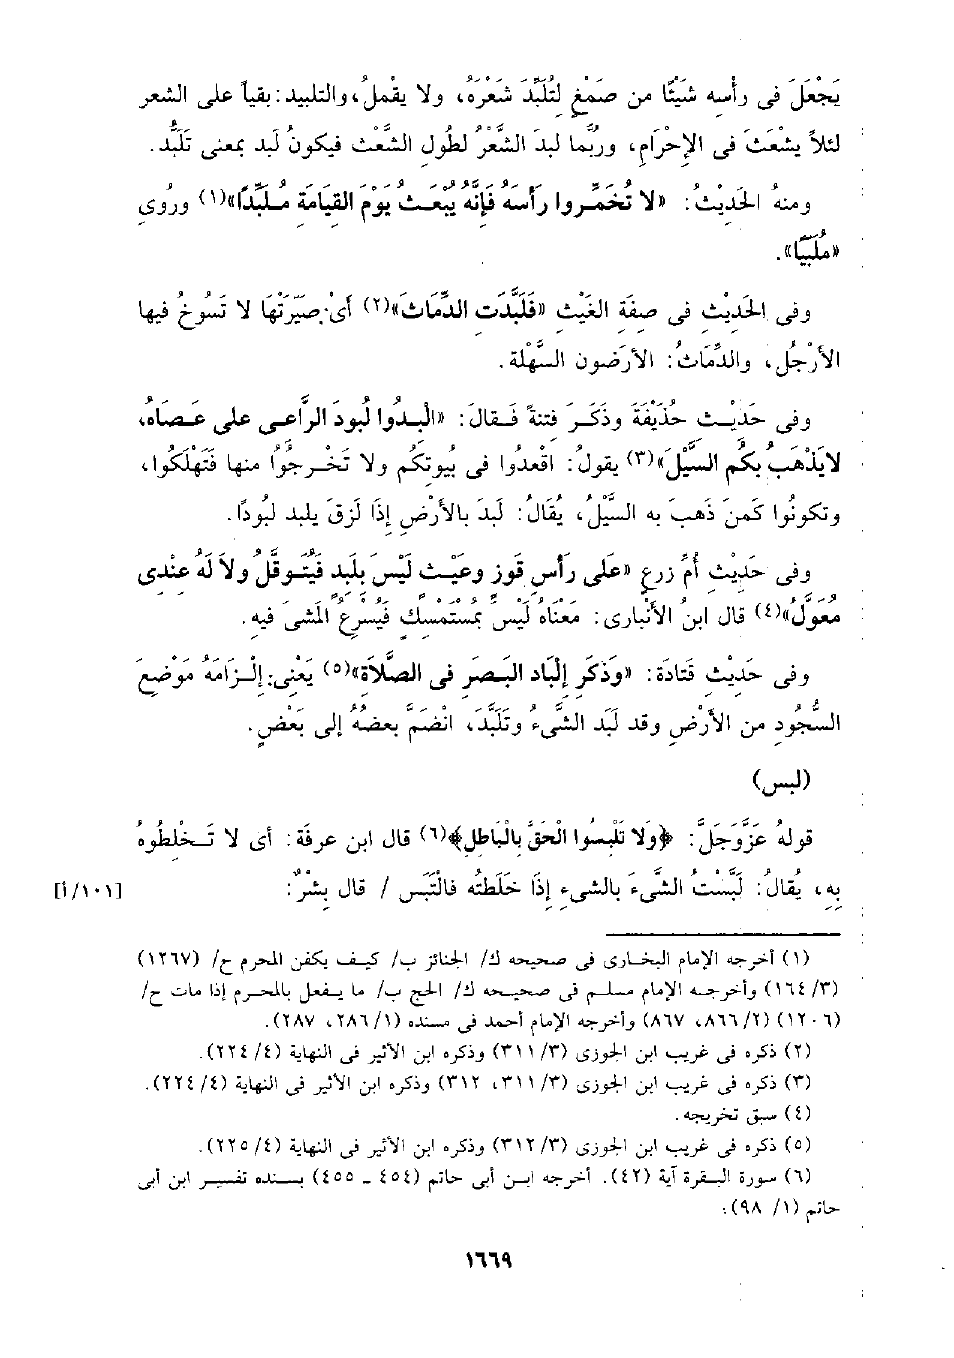 يَجْعَلَ فى رأْسه شَيْئًا من صَمْغٍ لتُلَبِّدَ شَعْرَهُ، ولا يقْملُ، والتلبيد: بقياً على الشعر
لئلاَّ يشْعَثَ فى الإحْرَامِ، ورُبَّما لبدَ الشَّعْرُ لطُولِ الشَّعْث فيكونُ لَبد بمعنى تَلَبُّد.
ومنهُ الحَديْثُ: «لا تُخَمِّروا رأسَه فَإنَّه يُبْعَثُ يوْمَ القيامَة مُلَبِّدًا»(١) ورُوىِ
«مُلَبِّيًا».
وفى الحَديْثِ فى صِفَةِ الغَيْثِ «فَلَبَّدَت الدِّمَاثَ»(٢) أىْ: صيّرَتْهَا لا تَسُوخُ فيها
الأرْجُل، والدِّمَاثُ: الأرَضون السَّهْلة.
وفى حَديْث حُذيْفَةَ وذَكَرَ فتنةً فَقالَ: «الْبدُوا لُبودَ الرَّاعى على عَصَاه،
لايَذْهَبُ بكُم السَّيْلَ»(٣) يقولُ: اقْعدُوا فى بُيوتكُم ولا تَخْرجُوا منها فَتَهْلكُوا،
وتكونُوا كَمنَ ذَهبَ به السيْلُ، يُقَالُ: لَبدَ بالأرْضِ إذَا لزقَ يلبد لبُودًا.
وفى حَديْثِ أمِّ زرعٍ «على رأسِ قوزٍ وعَيْث ليْسَ بلَبِدٍ فَيُتَوقَّلُ ولاَ لَه عنْدِى
مُعَوَّلٌ»(٤) قال ابنُ الأنْبارى: مَعْنَاهُ ليْسَ بمُسْتَمْسِكٍ فَيُسْرِعُ المْشىَ فيهِ.
وفى حَديْثِ قتَادَة: «وَذكَر إلْبَاد البَصَر فى الصَّلاَة»(٥) يَعْنِى: إلْزَامَهُ مَوْضِعَ
السُّجُودِ من الأرْضِ وقد لَبَد الشَّىءُ وتَلَبَّدَ، انْضَمَّ بعضُهُ إلى بَعْضٍ.
(لبس)
قولهُ عَزَّوَجَلَّ: ﴿وَلا تَلْبِسُوا الْحَقَّ بِالْبَاطِلِ﴾(٦) قال ابن عرفَة: أى لا تَخْلطُوهُ
بِهِ، يُقَالُ: لَبَسْتُ الشَّىءَ بالشىءِ إذَا خَلَطتُه فَالْتَبَس / قال بِشْرٌ:
[١٠١/أ]
(١) أخرجه الإمام البخارى فى صحيحه ك/ الجنائز ب/ كيف يكفن المحرم ح/ (١٢٦٧)
(٣/ ١٦٤) وأخرجه الإمام مسلم فى صحيحه ك/ الحج ب/ ما يفعل بالمحرم إذا مات ح/
(١٢٠٦) (٢/ ٨٦٦، ٨٦٧) وأخرجه الإمام أحمد فى مسنده (١/ ٢٨٦، ٢٨٧).
(٢) ذكره فى غريب ابن الجوزى (٣/ ٣١١) وذكره ابن الأثير فى النهاية (٤/ ٢٢٤).
(٣) ذكره فى غريب ابن الجوزى (٣/ ٣١١، ٣١٢) وذكره ابن الأثير فى النهاية (٤/ ٢٢٤).
(٤) سبق تخريجه.
(٥) ذكره فى غريب ابن الجوزى (٣/ ٣١٢) وذكره ابن الأثير فى النهاية (٤/ ٢٢٥).
(٦) سورة البقرة آية (٤٢). أخرجه ابن أبى حاتم (٤٥٤ ـ ٤٥٥) بسنده تفسير ابن أبى
حاتم (١/ ٩٨):
١٦٦٩